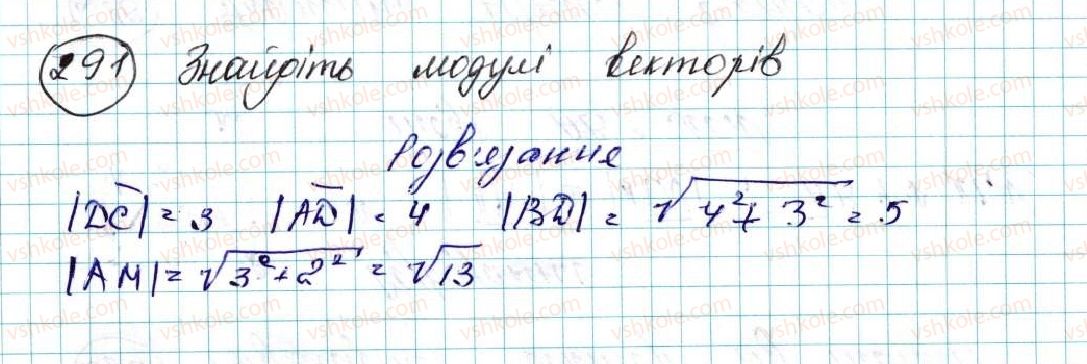 291 Знайдіть модулі векторів
Розв'язання
|DC| = 3 |AD| = 4 |BD| = √4² + 3² = 5
|AM| = √3² + 2² = √13